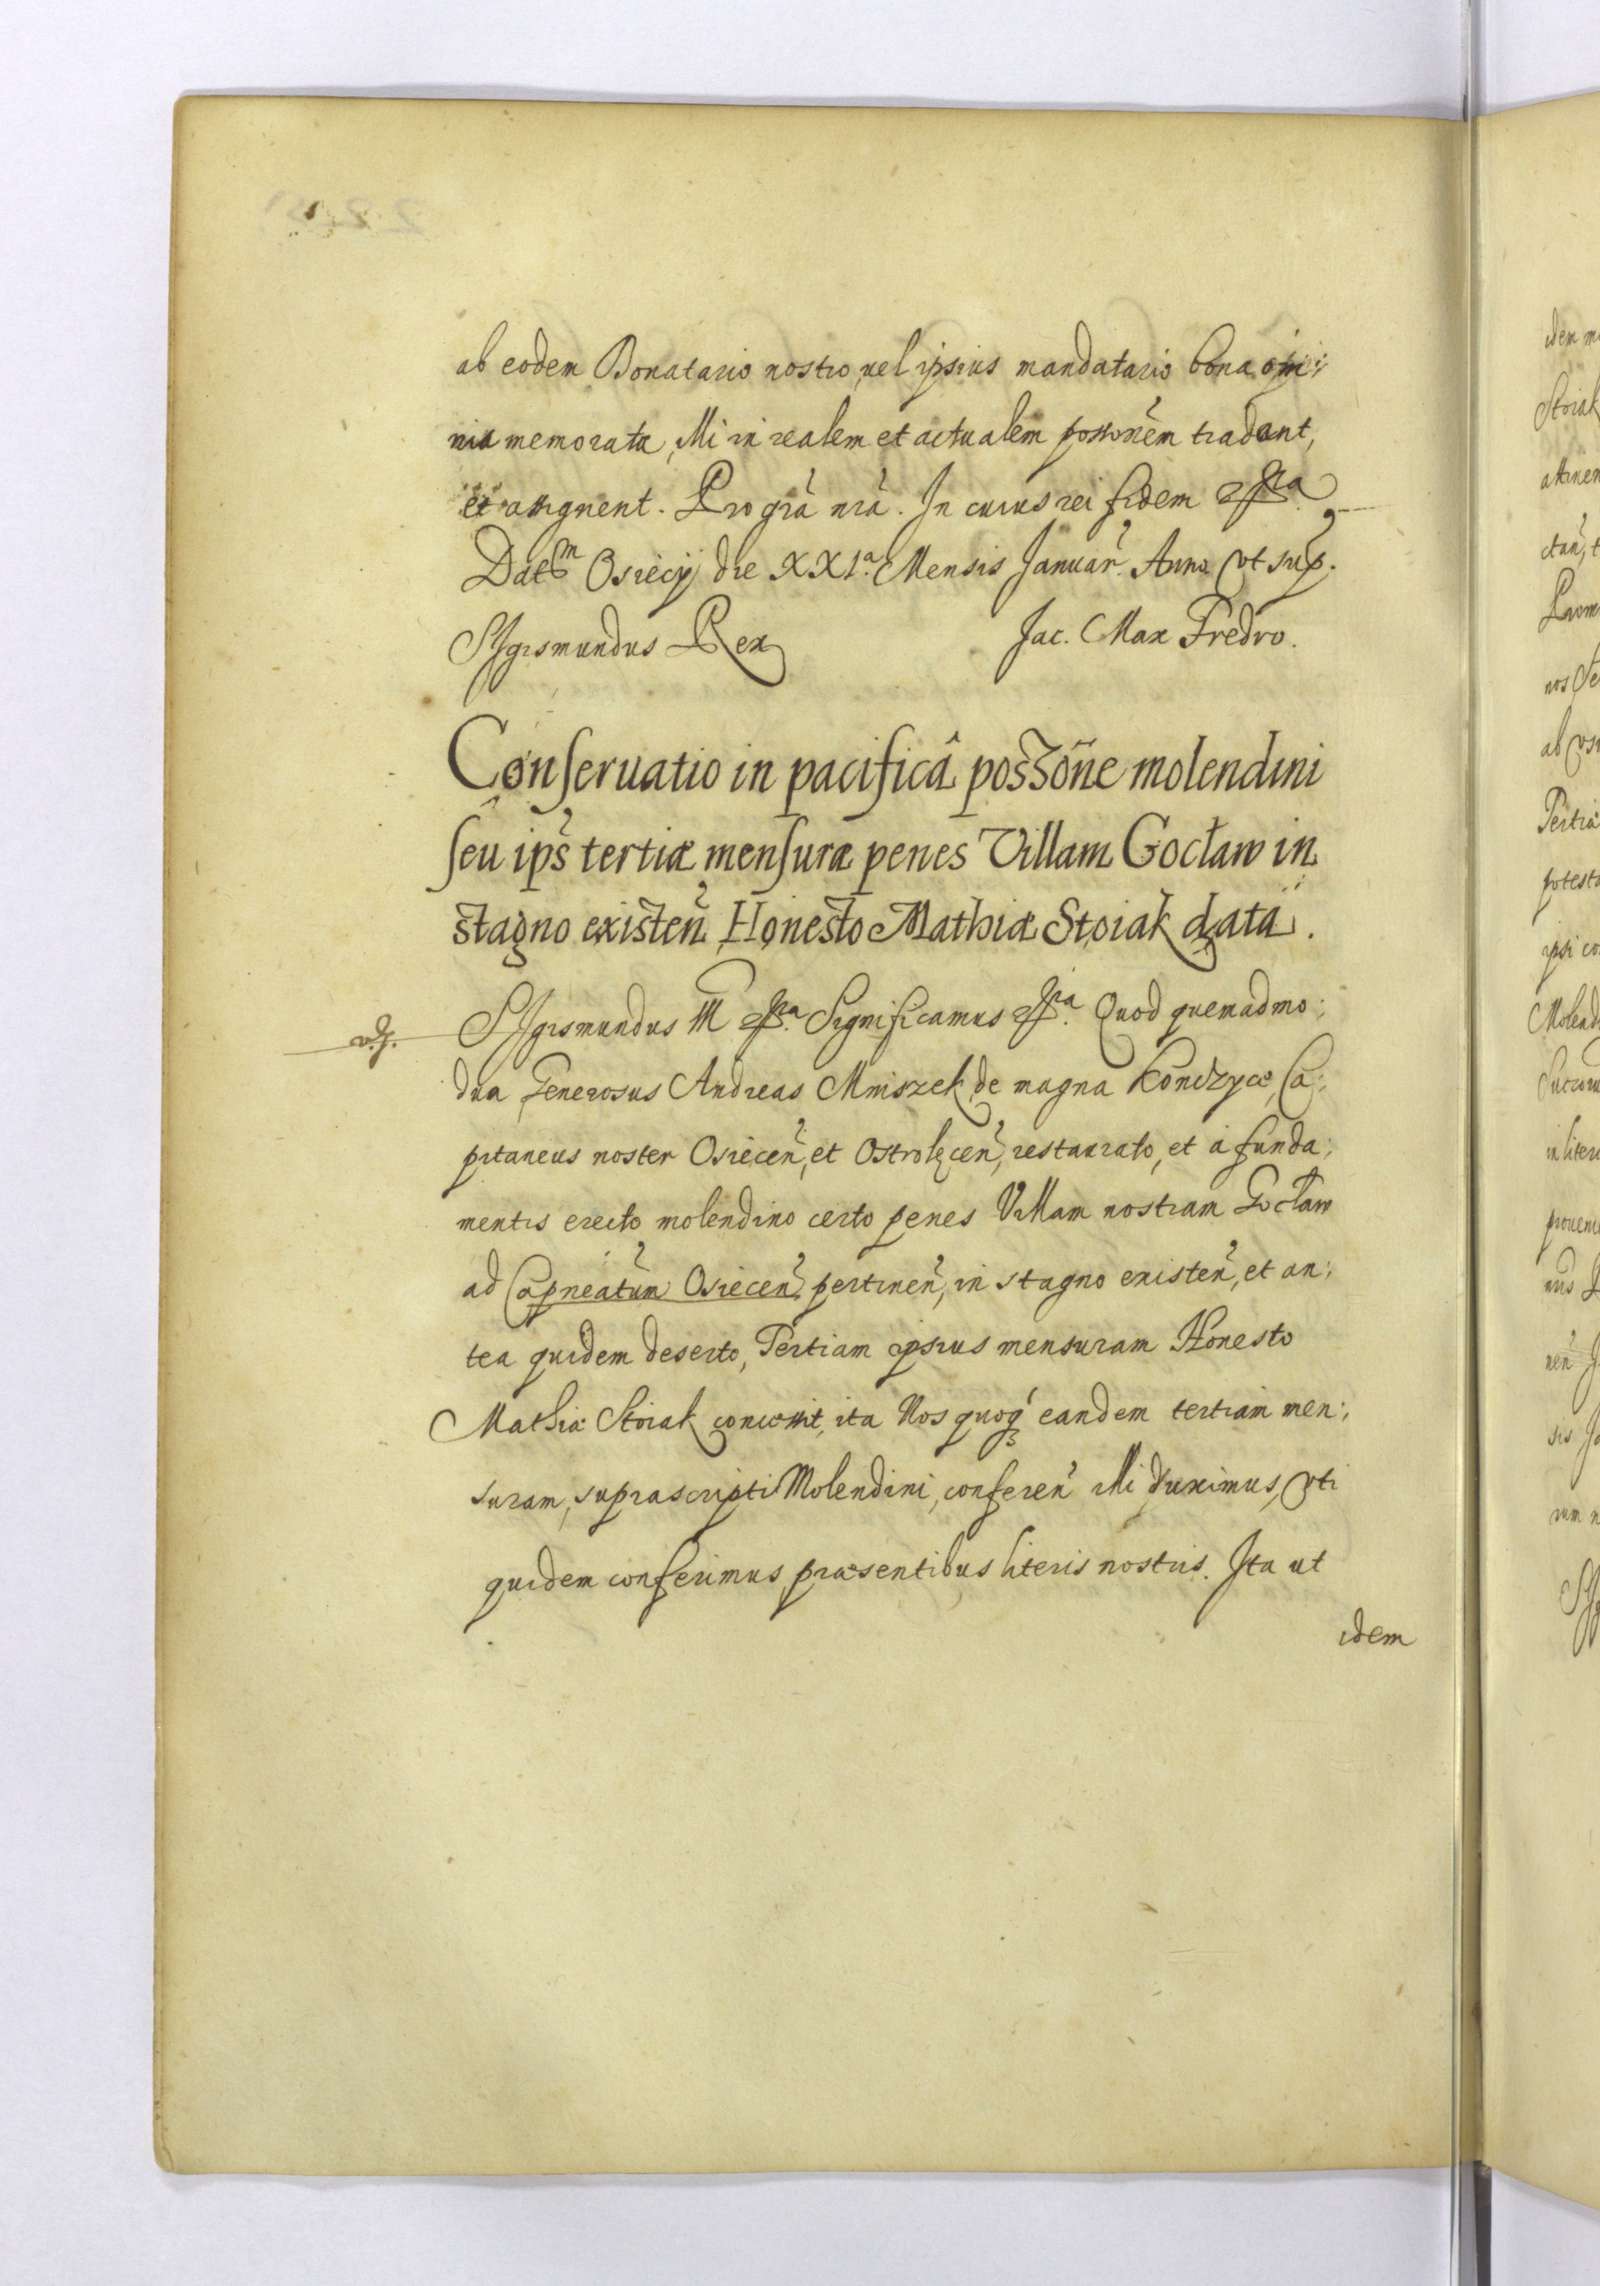 ab eodem Donatario nostro, uel ipsius mandatario bona om:
nia memorata, illi in realem et actualem possonẽm tradant,
et assignent. Pro grã nrã. In cuius rei fidem etc̃ra.
Datm Osiecÿ die XXIa. Mensis Januar̃. Anno vt sup̃.
Sigismundus Rex
Jac. Max Fredro.
Conseruatio in pacificâ possõne molendini
seu ips̃ tertiæ mensuræ penes Villam Gocław in
stagno existeñ Honesto Mathiæ Stoiak data.
Sigismundus III etc̃ra. Significamus etc̃ra. Quod quemadmo:
dum Generosus Andreas Mniszek de magna Kończyce, Ca:
pitaneus noster Osieceñ, et Ostrołęceñ, restaurato, et à funda:
mentis erecto molendino certo penes Villam nostram Gocław
ad Capneatũm Osieceñ pertineñ, in stagno existeñ, et an:
tea quidem deserto, Tertiam ipsius mensuram Honesto
Mathiæ Stoiak concessit, ita Nos quoq́ eandem tertiam men:
suram, suprascripti Molendini, confereñ illi duximus, vti
quidem conferimus præsentibus literis nostris. Ita ut
idem